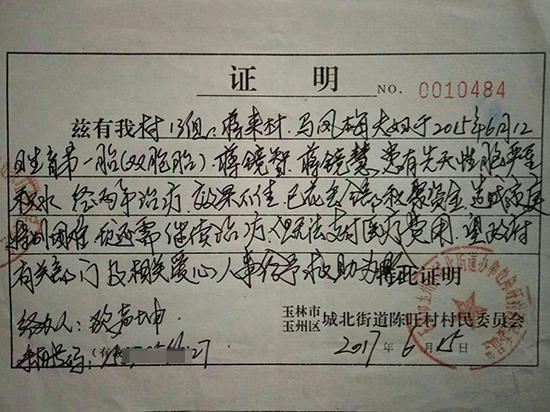 证 明
NO. 0010484
兹有我村13组:蒋来村、马凤梅夫妇于2015年6月12
日生育第一胎(双胞胎)、蒋镜智、蒋镜慧,患有先天性脑严重
积水,经两年治疗,效果不佳,已花去全部积蓄资金,造成家庭
特别困难,但还需继续治疗,但无法支付医疗费用,望政府
有关部门及相关爱心人事给予救助为盼
特此证明
玉林市
玉州区 城北街道陈旺村村民委员会
经办人:
手机号码:
2017年6月15日